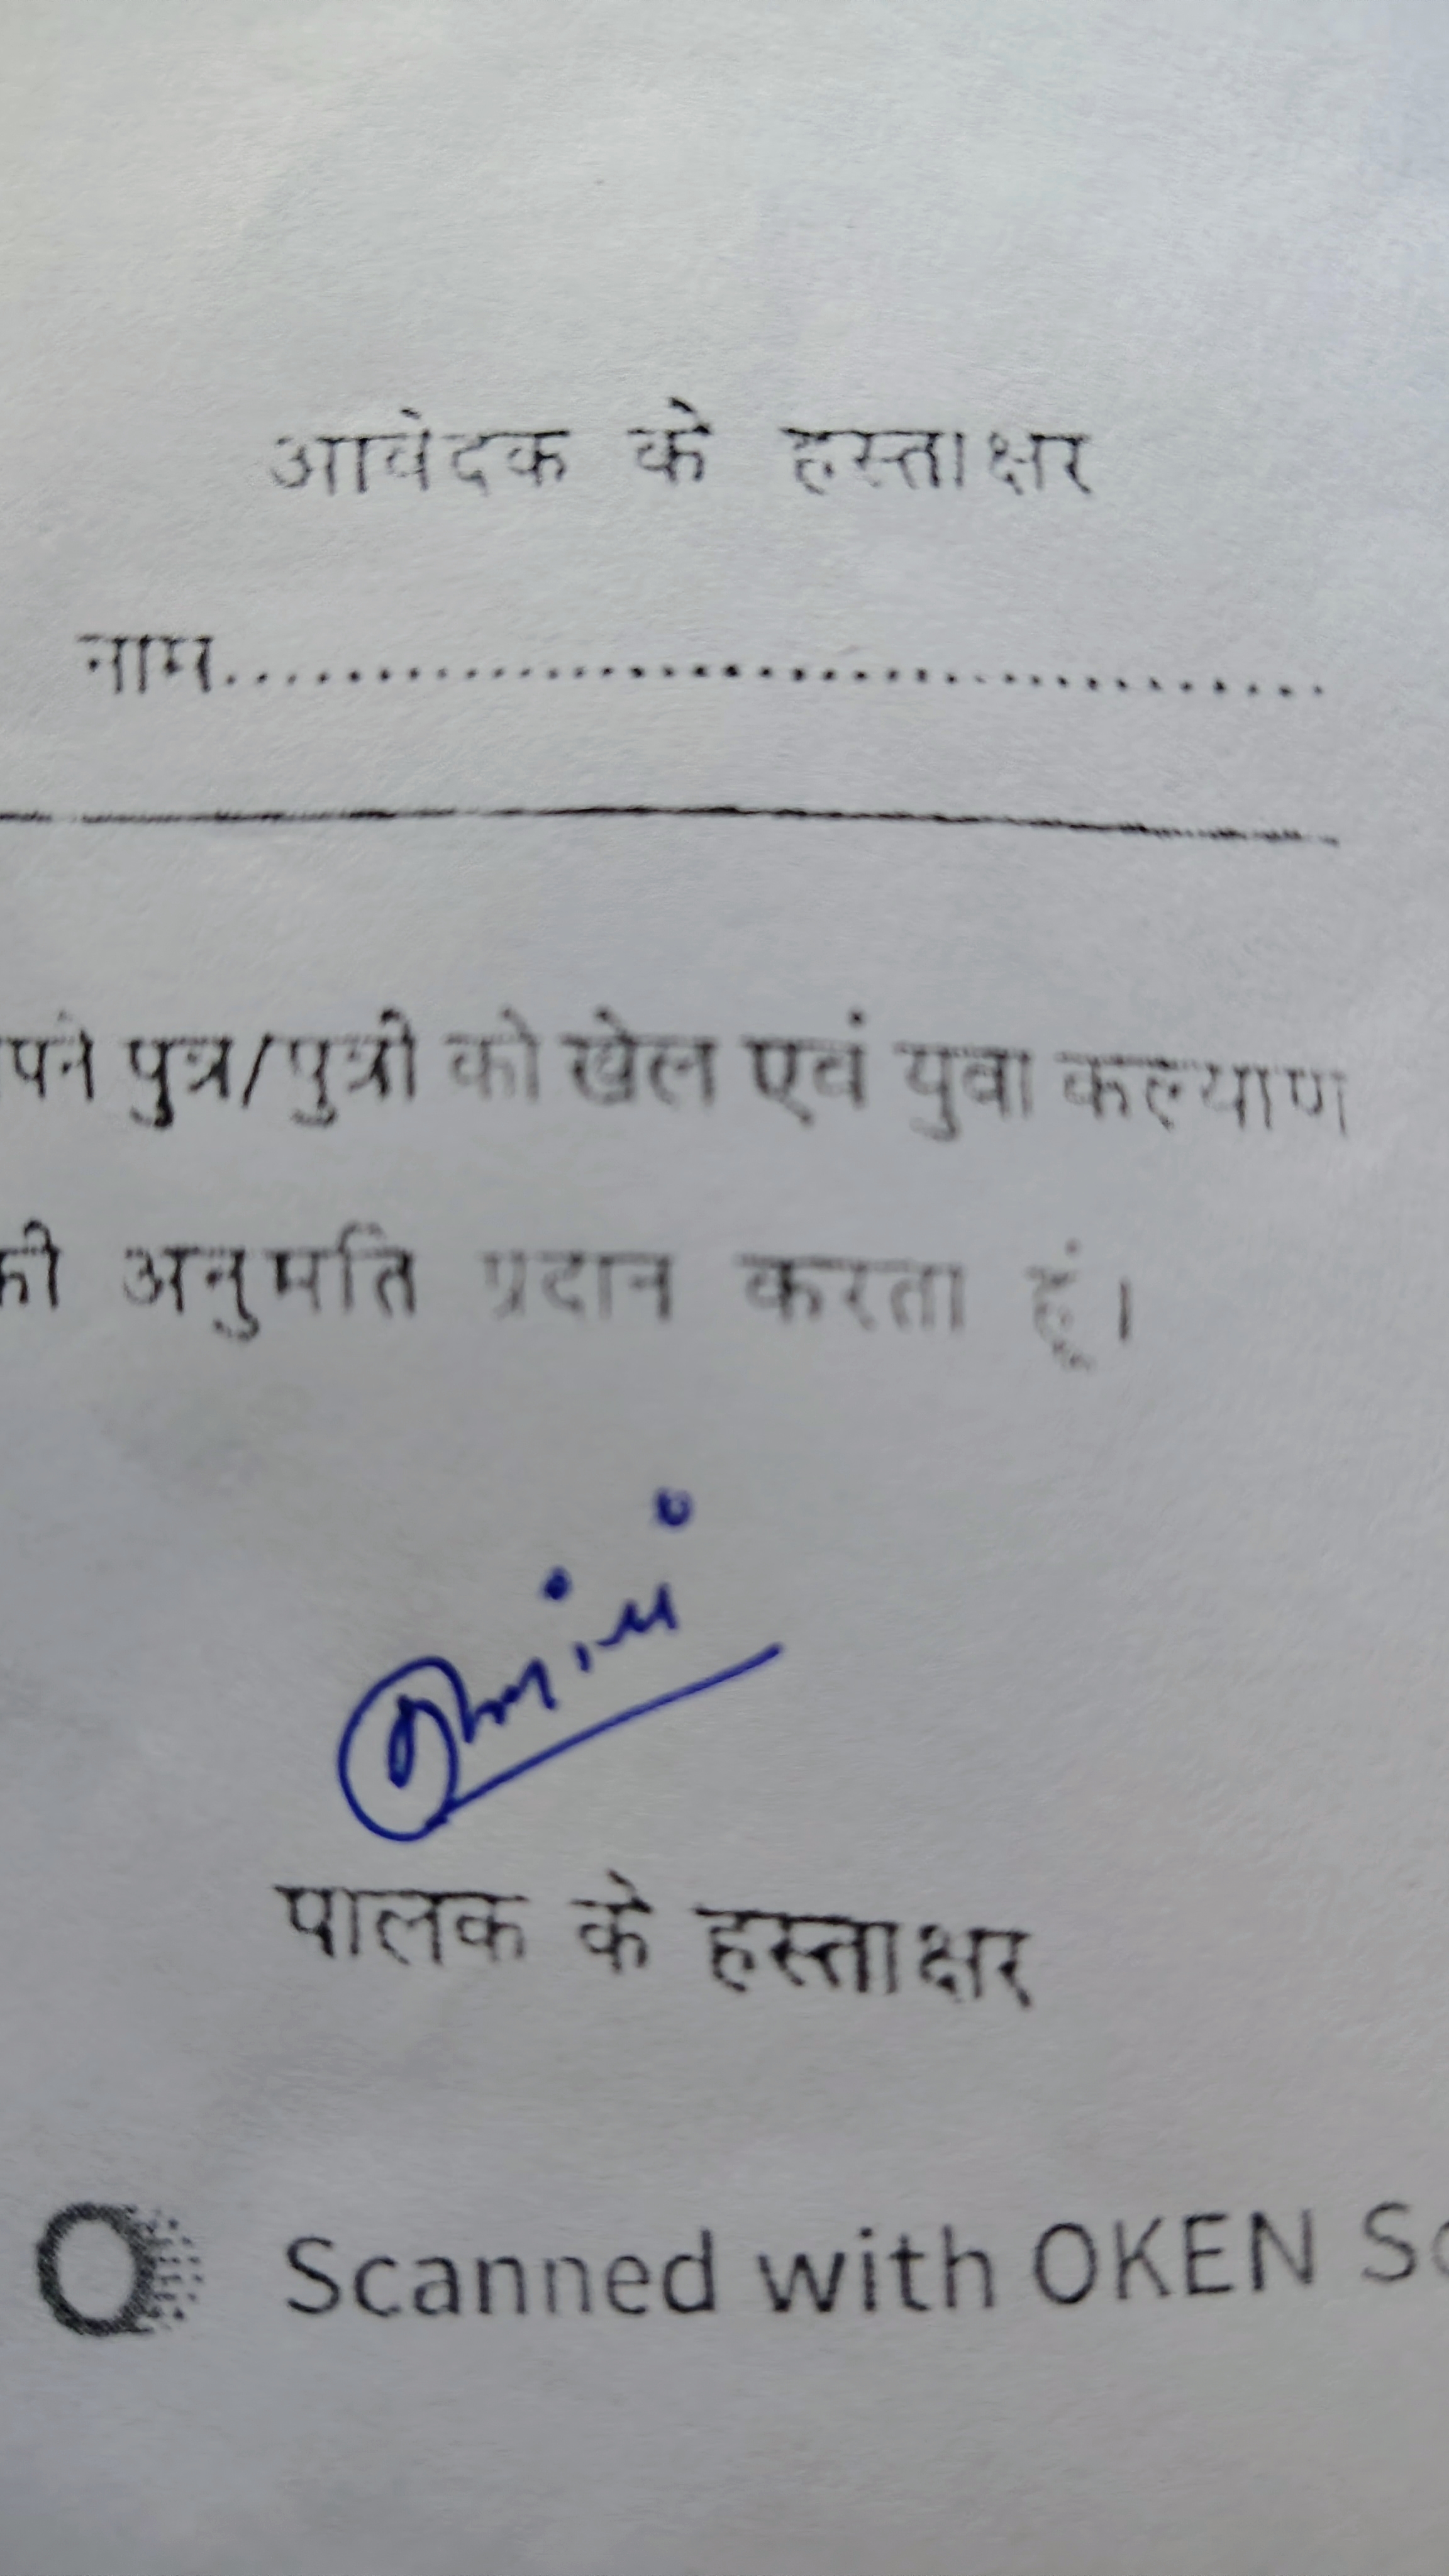 आवेदक के हस्ताक्षर
नाम.......................................
पने पुत्र/पुत्री को खेल एवं युवा कल्याण
की अनुमति प्रदान करता हूं।
पालक के हस्ताक्षर
Scanned with OKEN Sc